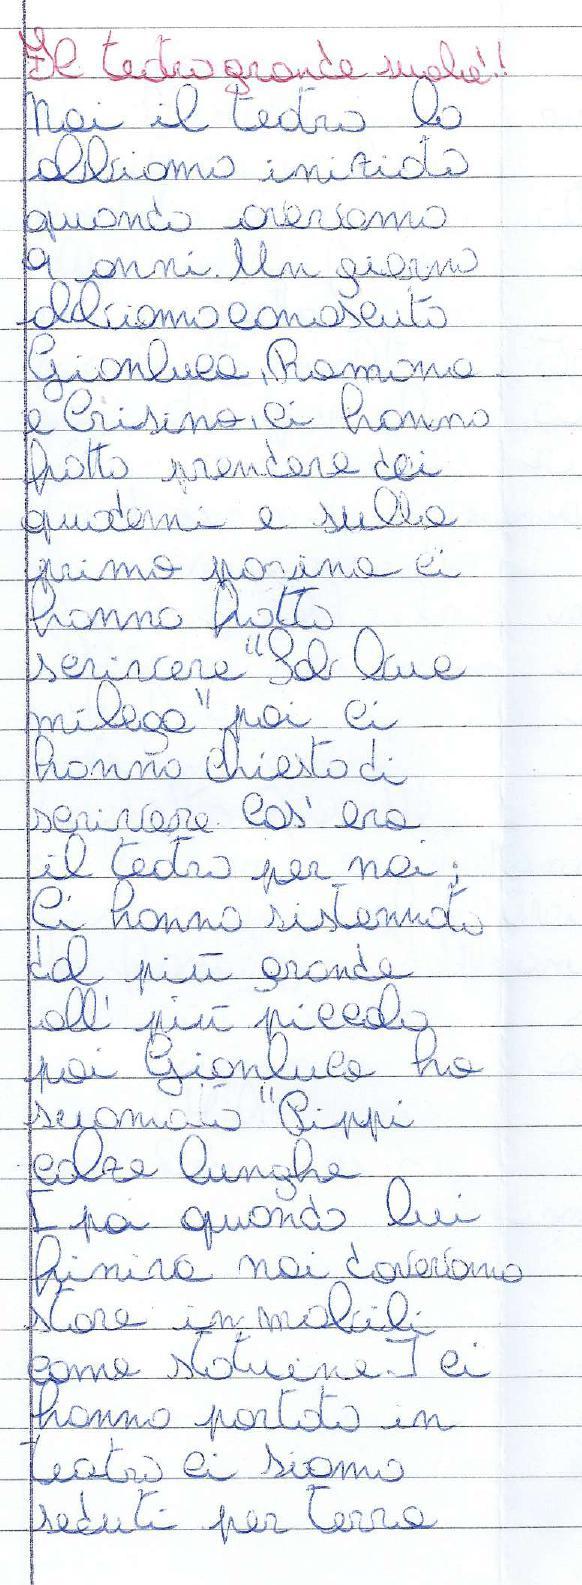 Il teatro grande suola!!
Noi il teatro lo
abbiamo iniziato
quando avevamo
9 anni. Un giorno
abbiamo conosciuto
Gianluca, Ramona
e Crisina, ci hanno
fatto prendere dei
quaderni e sulla
prima pagina ci
hanno fatto
scrivere "Sal
milega" poi ci
hanno chiesto di
scrivere cos' era
il teatro per noi;
Ci hanno sistemato
dal più grande
all' più piccolo
poi Gianluca ha
suonato "Pippi
calze lunghe
E poi quando lui
finiva noi dovevamo
stare in mobili
come statuine. I ci
hanno portato in
teatro ci siamo
seduti per terra